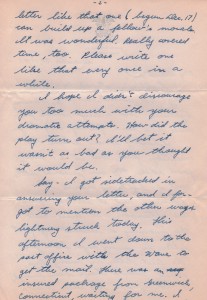 - 2 -
letter like that one (begun Dec. 17)
can build up a fellow's morale
It was wonderful. Really covered
time too. Please write one
like that every once in a
while.
I hope I didn't discourage
you too much with your
dramatic attempts. How did the
play turn out? I'll bet it
wasn't as bad as you thought
it would be.
Say - I got sidetracked in
answering your letter, and I for-
got to mention the other way
lightning struck today. This
afternoon I went down to the
post office with the to
get the mail. There was an
insured package from Greenwich,
Connecticut, waiting for me. I